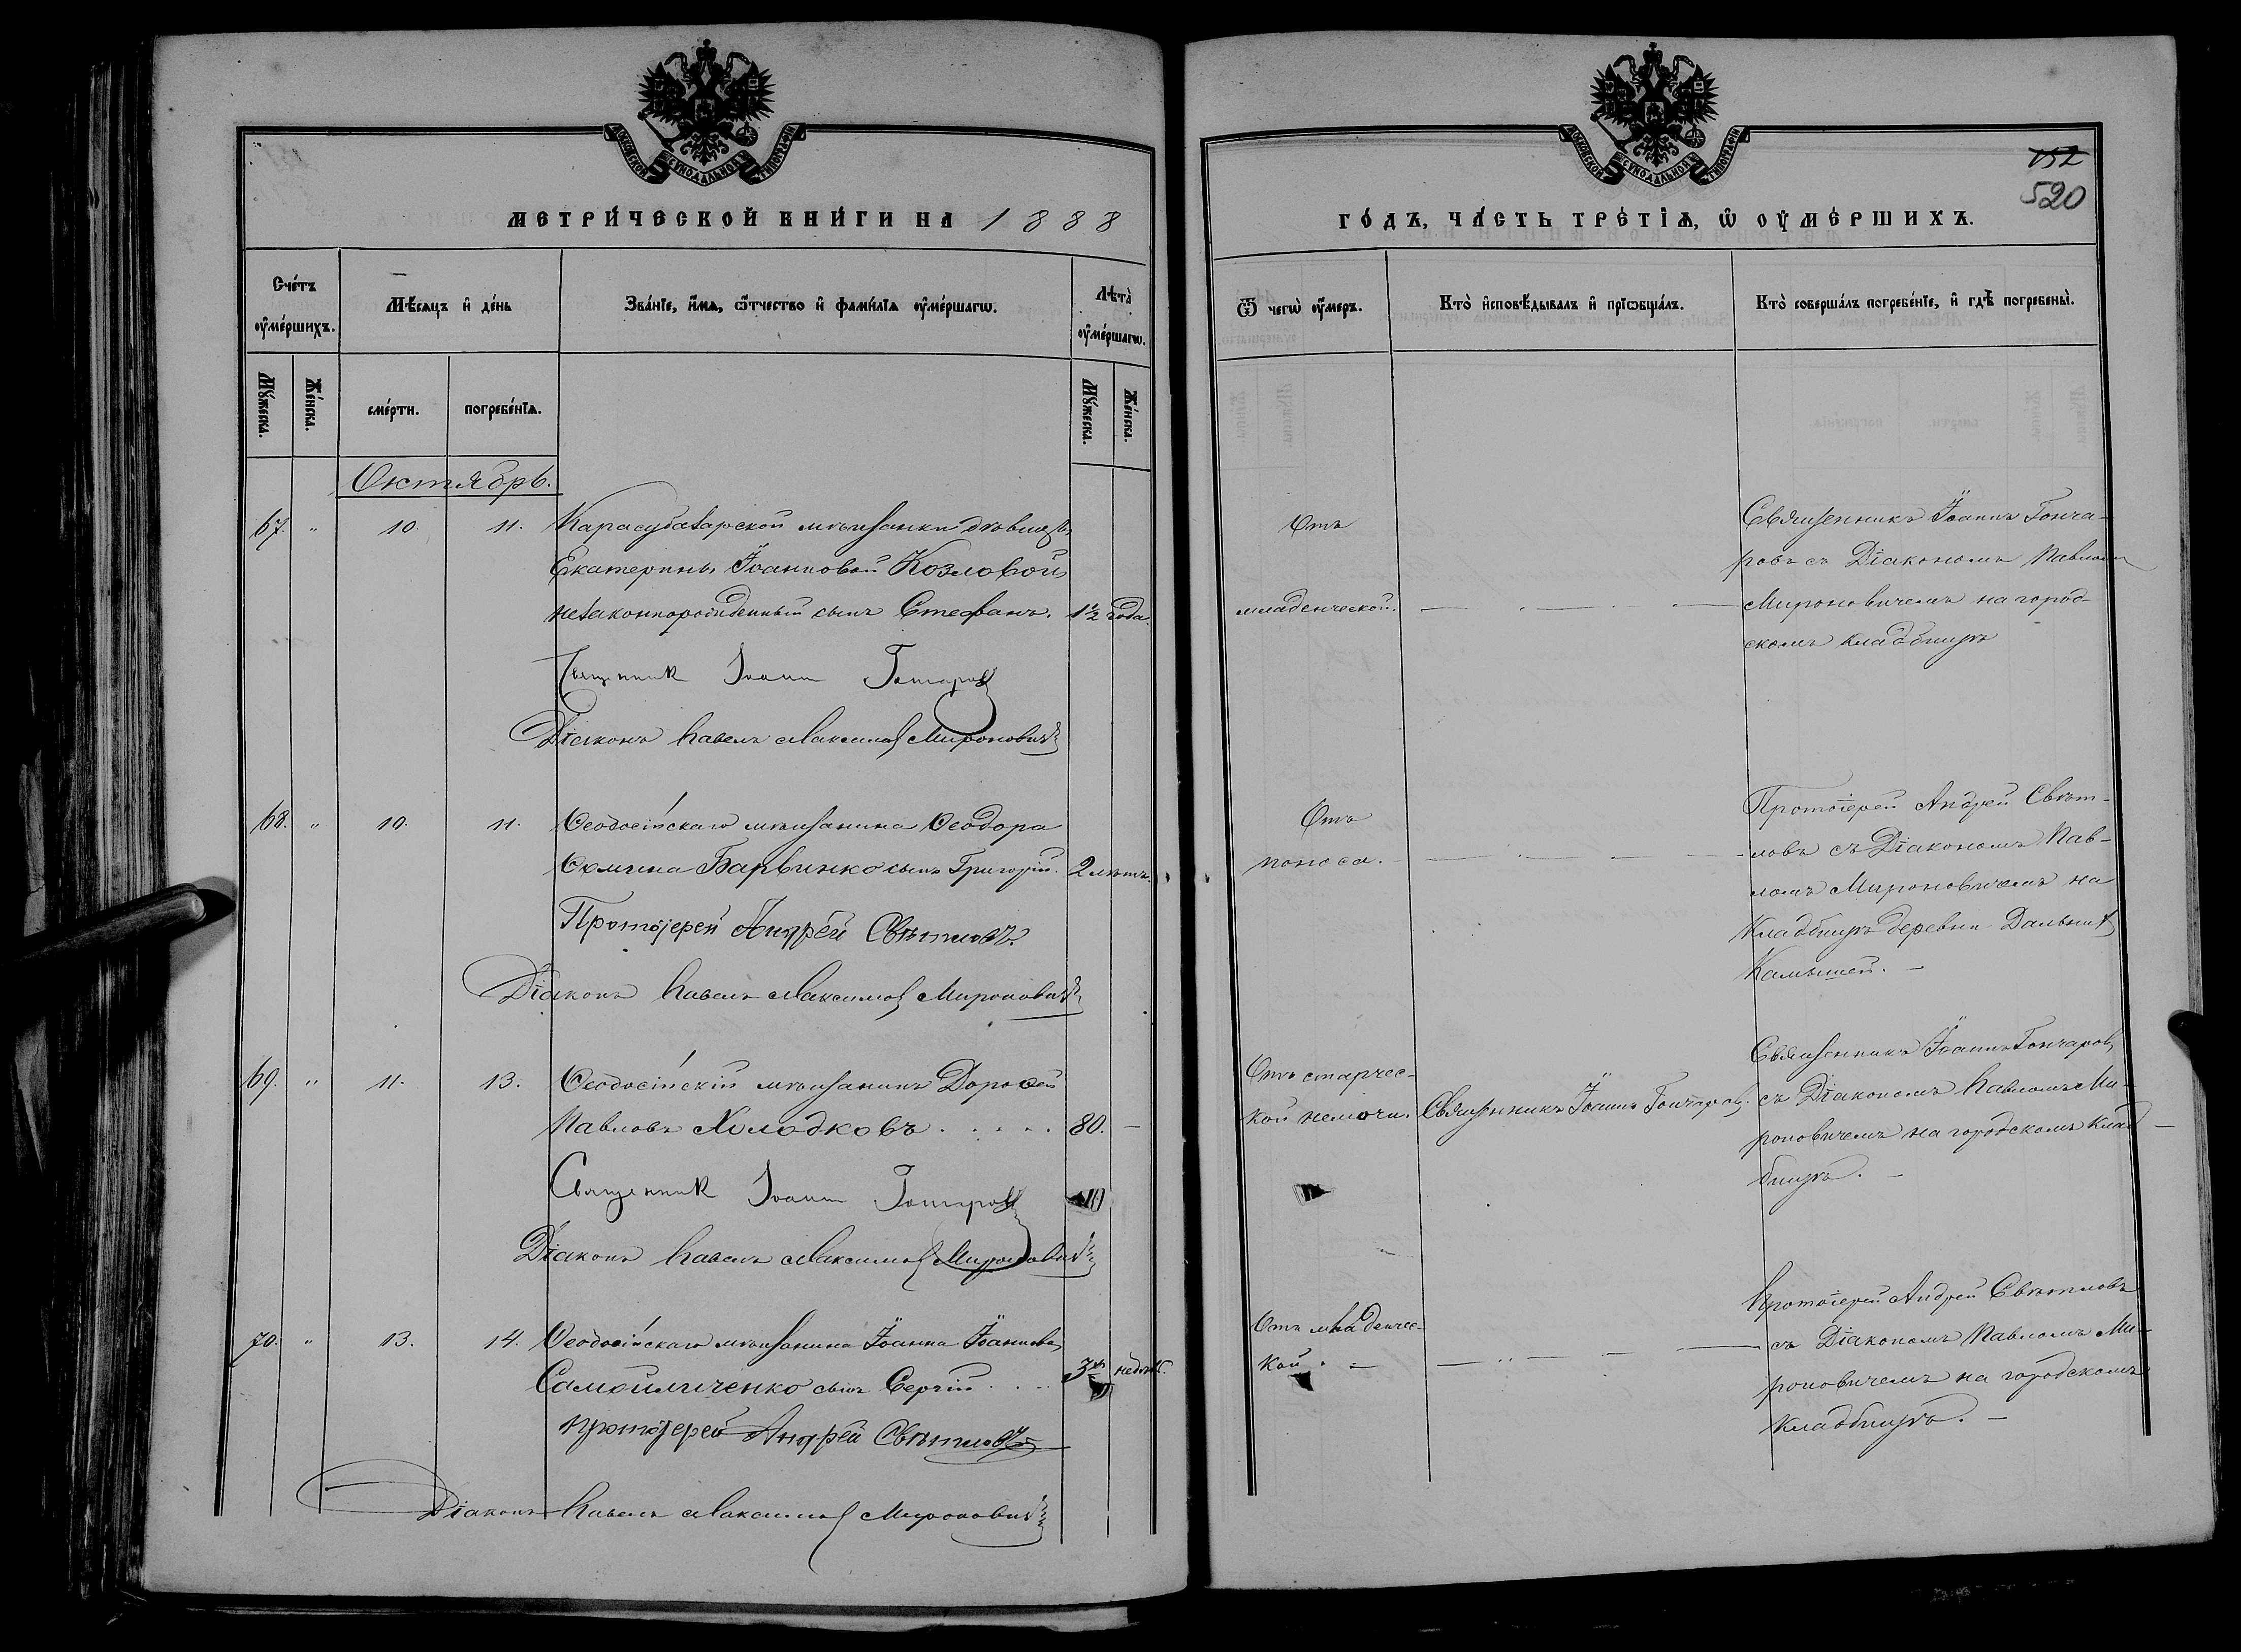 МОСКОВСКОЙ СѴНОДАЛЬНОЙ ТИПОГРАФІИ
МЕТРИ́ЧЕСКОЙ КНИ́ГИ НА 1888
Сче́тъ оу҆ме́ршихъ.
Мѣ́сяцъ и҆ де́нь
Зва́нїе, и҆́мѧ, ѻ҆́тчество и҆ фами́лїѧ оу҆ме́ршагѡ.
Лѣта̀ оу҆ме́ршагѡ.
Мꙋ́жеска.
Же́нска.
сме́рти.
погребе́нїѧ.
Мꙋ́жеска.
Же́нска.
Октябрь.
67. " 10. 11. Карасубазарской мѣщанки дѣвицы
Екатерины Іоанновой Козловой
незаконнорожденный сынъ Стефанъ. 1½ года.
Священник Іоанн Гончаров
Діаконъ Павелъ Максимов Мироновичъ
68. " 10. 11. Ѳеодосійскаго мѣщанина Ѳеодора
Ѳомина Барвинко сынъ Григорій. 2 лѣтъ.
Протоіерей Андрей Свѣтловъ.
Діаконъ Павелъ Максимов Мироновичъ
69. " 11. 13. Ѳеодосійскій мѣщанинъ Дороѳей
Павловъ Холодковъ . . . . . 80. —
Священник Іоанн Гончаров
Діаконъ Павелъ Максимов Мироновичъ
70. " 13. 14. Ѳеодосійскаго мѣщанина Іоанна Іоаннова
Самойличенко сынъ Сергій . . . 3хъ недѣль.
Протоіерей Андрей Свѣтловъ
Діаконъ Павелъ Максимов Мироновичъ
МОСКОВСКОЙ СѴНОДАЛЬНОЙ ТИПОГРАФІИ
152
520
ГО́ДЪ, ЧА́СТЬ ТРЕ́ТІѦ, Ѡ҆ ОУ҆МЕ́РШИХЪ.
Ѿ чегѡ̀ оу҆́меръ.
Кто̀ и҆сповѣ́дывалъ и҆ прїѡбща́лъ.
Кто̀ соверша́лъ погребе́нїе, и҆ гдѣ̀ погребены̀.
Отъ
младенческой.
Священникъ Іоаннъ Гонча-
ровъ съ Діакономъ Павломъ
Мироновичемъ на город-
скомъ кладбищѣ
Отъ
поноса.
Протоіерей Андрей Свѣт-
ловъ съ Діакономъ Пав-
ломъ Мироновичемъ на
кладбищѣ деревни Дальних
Камышей. —
Отъ старчес-
кой немочи.
Священникъ Іоаннъ Гончаров.
Священникъ Іоаннъ Гончаров
съ Діакономъ Павломъ Ми-
роновичемъ на городскомъ клад-
бищѣ. —
Отъ младенчес-
кой. —
Протоіерей Андрей Свѣтловъ
съ Діакономъ Павломъ Ми-
роновичемъ на городскомъ
кладбищѣ. —